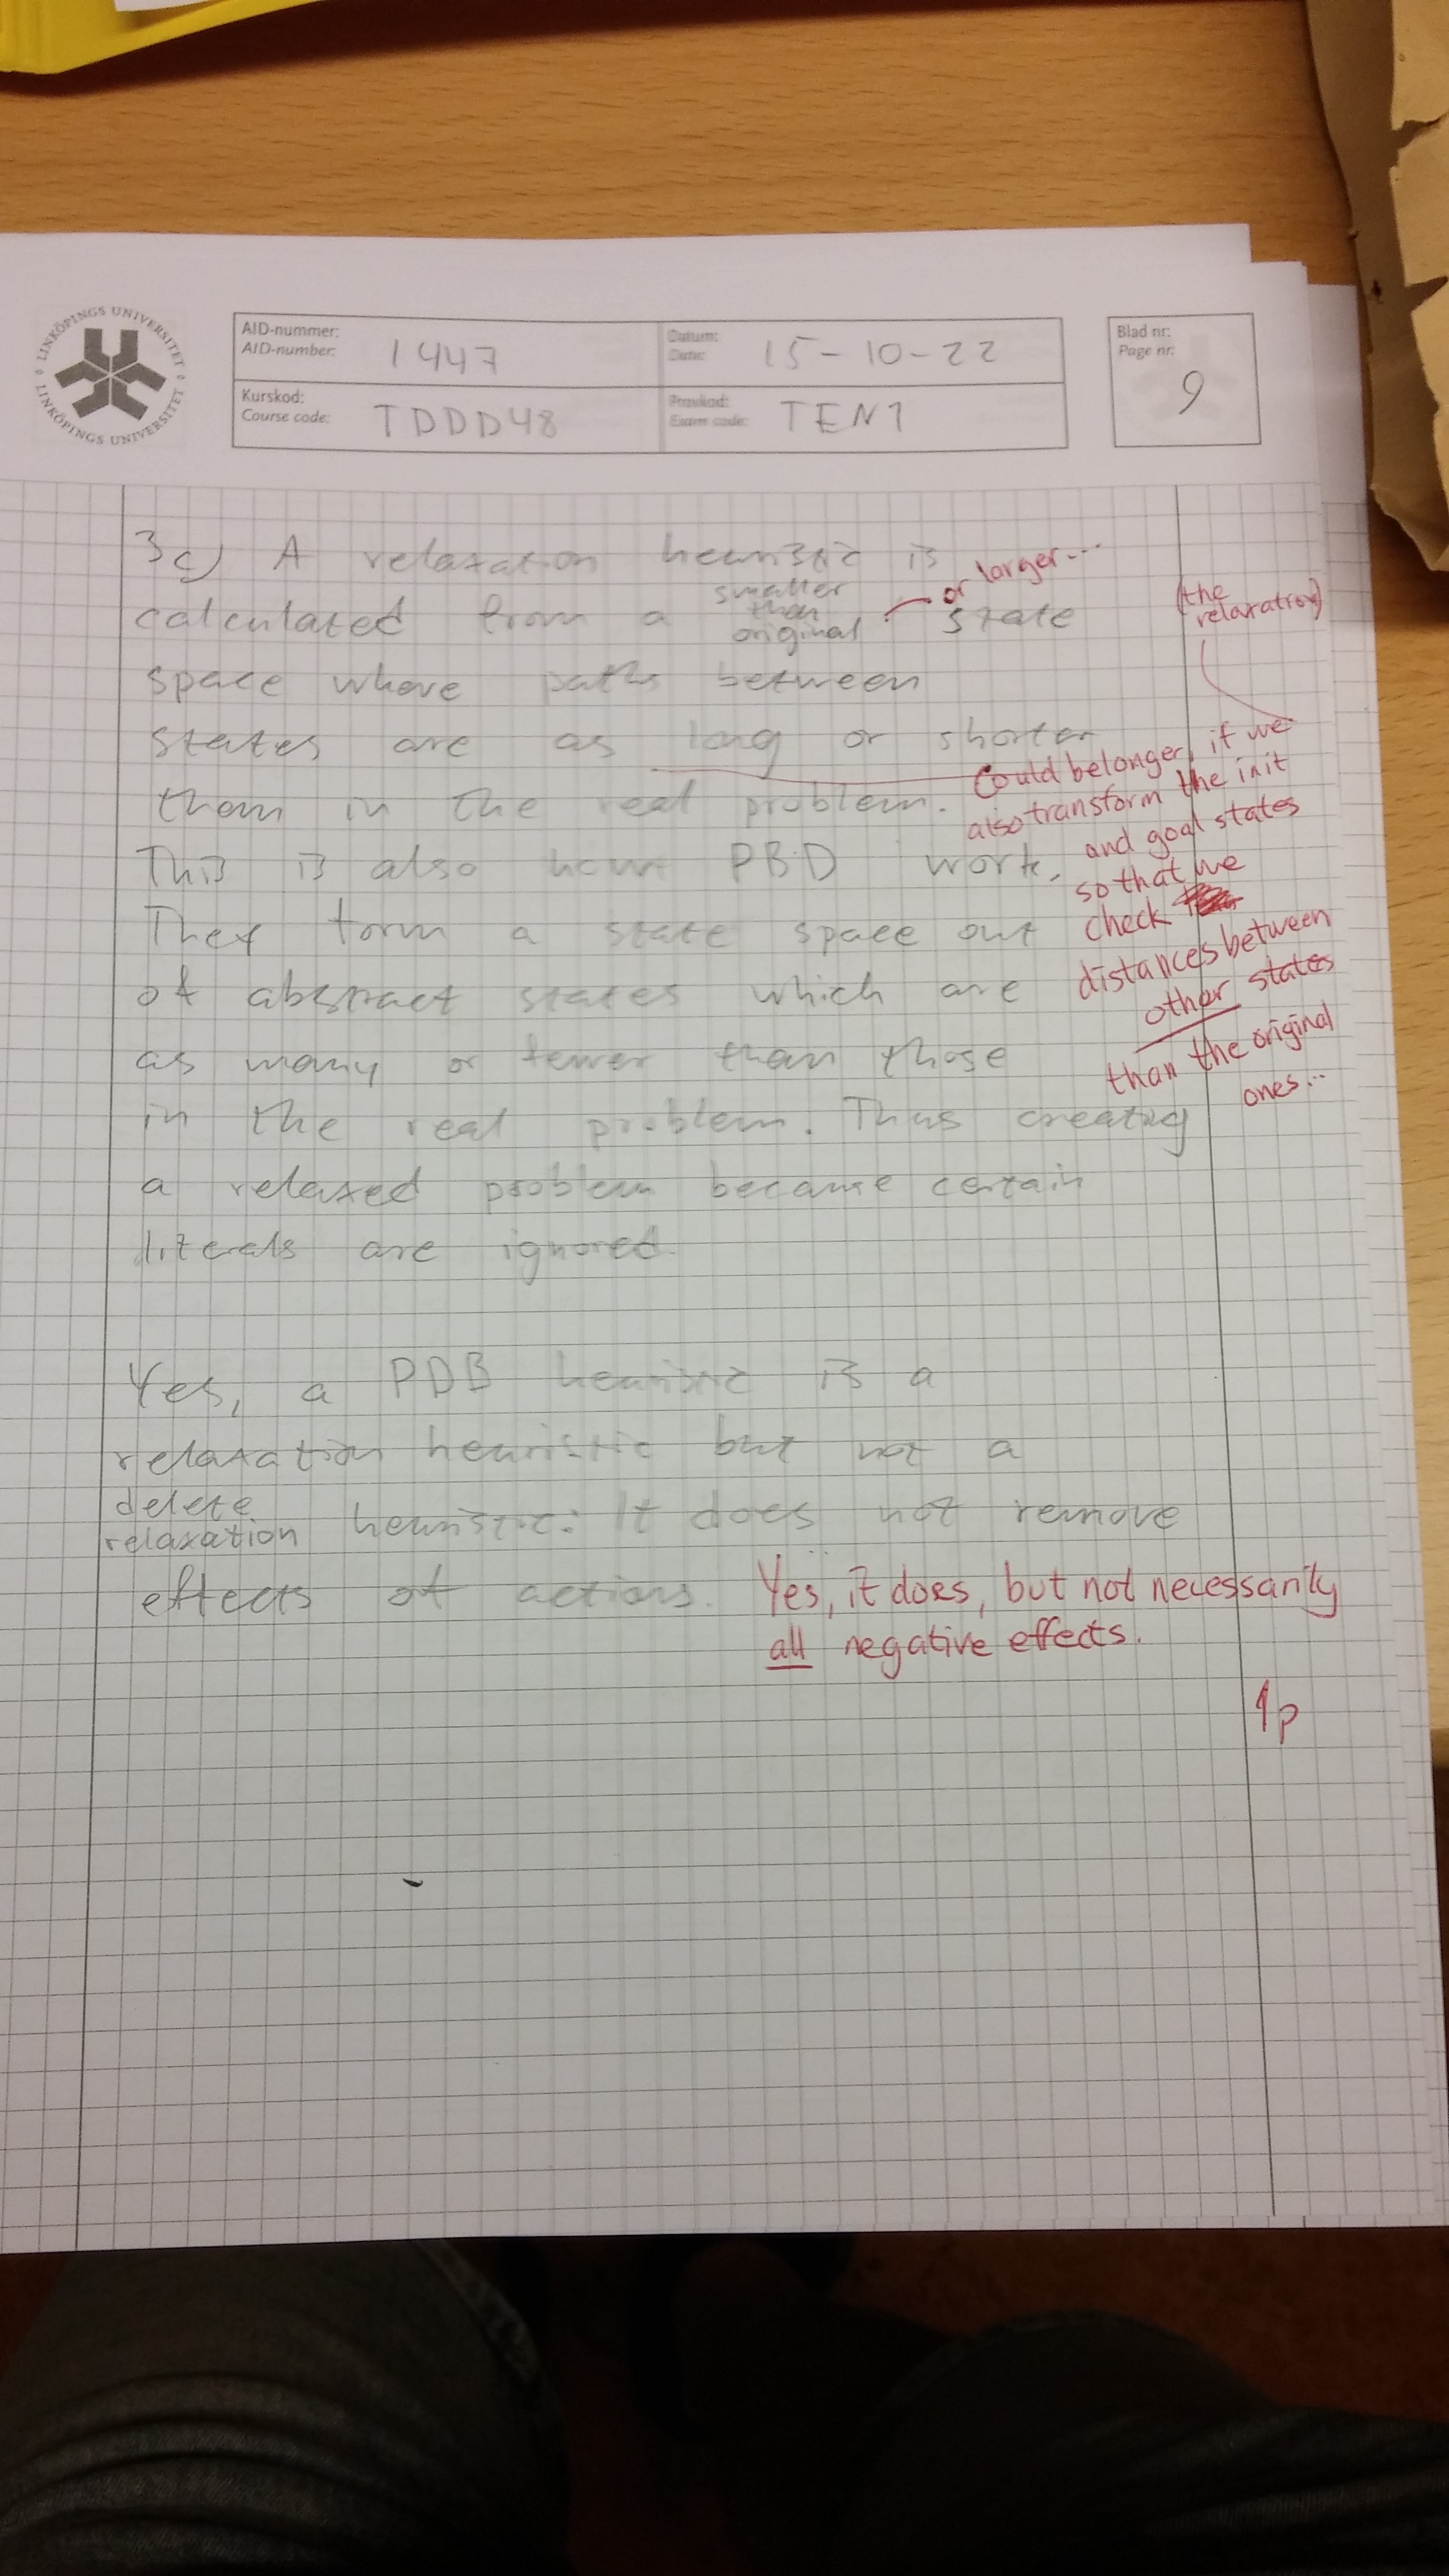 LINKÖPINGS UNIVERSITET
LINKÖPINGS UNIVERSITET
AID-nummer:
AID-number:
1447
Datum:
Date:
15-10-22
Kurskod:
Course code:
TDDD48
Provkod:
Exam code:
TEN1
Blad nr:
Page nr:
9
3c) A relaxation heuristic is
calculated from a smaller than original state
or larger...
space where paths between
states are as long or shorter
than in the real problem.
This is also how PBD work.
They form a state space out
of abstract states which are
as many or fewer than those
in the real problem. Thus creating
a relaxed problem because certain
literals are ignored.
(the
relaxation)
Could be longer, if we
also transform the init
and goal states
so that we
check
distances between
other states
than the original
ones...
Yes, a PDB heuristic is a
relaxation heuristic but not a
delete relaxation heuristic. It does not remove
effects of actions.
Yes, it does, but not necessarily
all negative effects.
1p